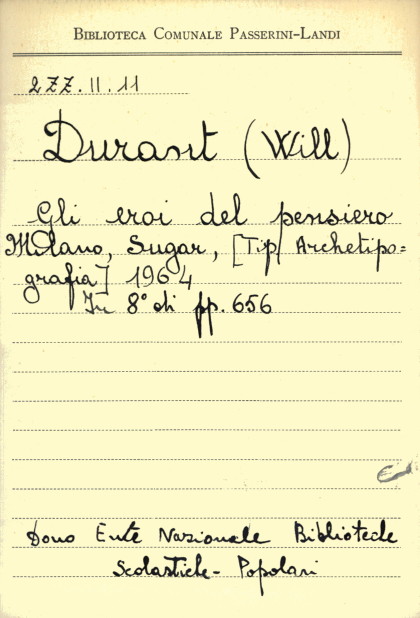 BIBLIOTECA COMUNALE PASSERINI-LANDI
2ZZ.II.11
Durant (Will)
Gli eroi del pensiero
Milano, Sugar, [Tip. Archetipo=
grafia] 1964
In 8° di pp. 656
Dono Ente Nazionale Biblioteche
Scolastiche - Popolari